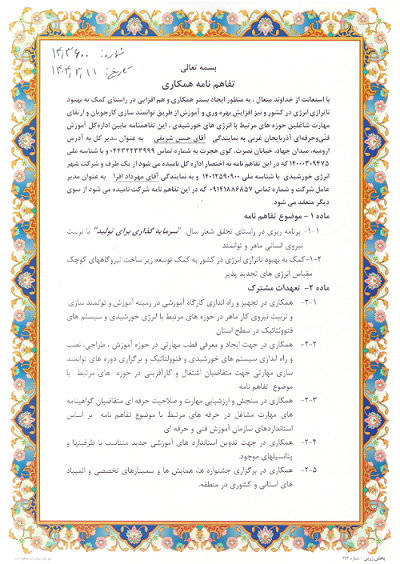 شماره: ۱۳,۳۶۰۰
تاریخ: ۱۴۰۴,۲,۱۱
بسمه تعالی
تفاهم نامه همکاری
با استعانت از خداوند متعال ، به منظور ایجاد بستر همکاری و هم افزایی در راستای کمک به بهبود
ناترازی انرژی در کشور و نیز افزایش بهره وری و آموزش از طریق توانمند سازی کارجویان و ارتقای
مهارت شاغلین حوزه های مرتبط با انرژی های خورشیدی ، این تفاهمنامه مابین اداره‌کل آموزش
فنی‌وحرفه‌ای آذربایجان غربی به نمایندگی آقای حسن شریفی به عنوان مدیر کل به آدرس
ارومیه، میدان جهاد، خیابان نصرت، کوی هجرت به شماره تماس ۰۴۴۳۲۲۳۳۹۹۹ و با شناسه ملی
۱۴۰۰۰۳۰۹۴۷۵ که در این تفاهم نامه به اختصار اداره کل نامیده می شود از یک طرف و شرکت شهر
انرژی خورشیدی با شناسه ملی ۱۴۰۱۲۵۹۰۹۰۰ و به نمایندگی آقای مهرداد افرا به عنوان مدیر
عامل شرکت و شماره تماس ۰۹۱۴۱۸۸۶۸۵۷ که در این تفاهم نامه شرکت نامیده می شود از سوی
دیگر منعقد می شود.
ماده ۱- موضوع تفاهم نامه
۱-۱- برنامه ریزی در راستای تحقق شعار سال "سرمایه گذاری برای تولید" با تربیت
نیروی انسانی ماهر و توانمند
۱-۲-کمک به بهبود ناترازی انرژی در کشور به کمک توسعه زیر ساخت نیروگاههای کوچک
مقیاس انرژی های تجدید پذیر
ماده ۲- تعهدات مشترک
۲-۱- همکاری در تجهیز و راه اندازی کارگاه آموزشی در زمینه آموزش و توانمند سازی
و تربیت نیروی کار ماهر در حوزه های مرتبط با انرژی خورشیدی و سیستم های
فتوولتائیک در سطح استان
۲-۲- همکاری در جهت ایجاد و معرفی قطب مهارتی در حوزه آموزش ، طراحی، نصب
و راه اندازی سیستم های خورشیدی و فتوولتائیک و برگزاری دوره های توانمند
سازی مهارتی جهت متقاضیان اشتغال و کارآفرینی در حوزه های مرتبط با
موضوع تفاهم نامه
۲-۳- همکاری در سنجش و ارزشیابی مهارت و صلاحیت حرفه ای متقاضیان گواهینامه
های مهارت مشاغل در حرفه های مرتبط با موضوع تفاهم نامه بر اساس
استانداردهای سازمان آموزش فنی و حرفه ای
۲-۴- همکاری در جهت تدوین استاندارد های آموزشی جدید متناسب با ظرفیتها و
پتانسیلهای موجود.
۲-۵- همکاری در برگزاری جشنواره ها، همایش ها و سمینارهای تخصصی و المپیاد
های استانی و کشوری در منطقه.